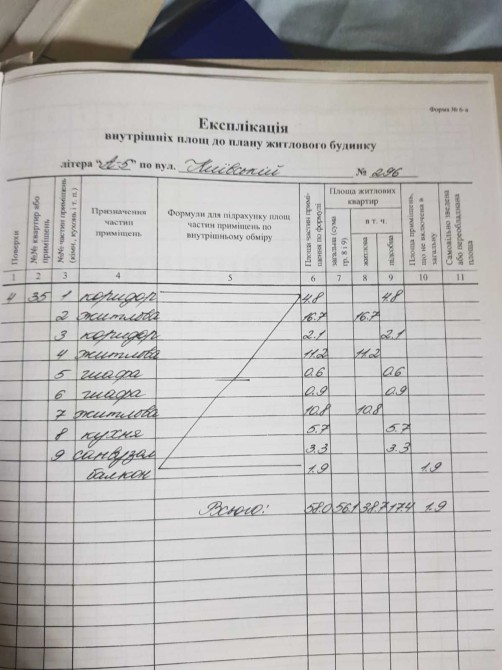 Форма № 6-а
Експлікація
внутрішніх площ до плану житлового будинку
літера "А-5" по вул. Київській № 296
Поверхи
№№ квартир або приміщень
№№ частин приміщень (кімнат, кухонь і т. п.)
Призначення частин приміщень
Формули для підрахунку площ частин приміщень по внутрішньому обміру
Площа частин приміщення по формулі
Площа житлових квартир
загальна (сума гр. 8 і 9)
в т. ч.
житлова
підсобна
Площа приміщень, що не включена в загальну
Самовільно зведена або переобладнана площа
1 2 3 4 5 6 7 8 9 10 11
4 35 1 коридор 4.8 4.8
2 житлова 16.7 16.7
3 коридор 2.1 2.1
4 житлова 11.2 11.2
5 шафа 0.6 0.6
6 шафа 0.9 0.9
7 житлова 10.8 10.8
8 кухня 5.7 5.7
9 санвузол 3.3 3.3
балкон 1.9 1.9
Всього: 58.0 56.1 38.7 17.4 1.9